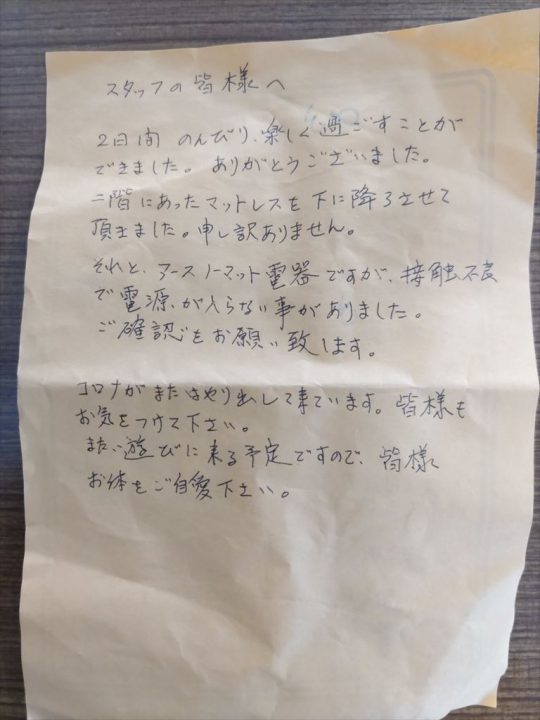 スタッフの皆様へ
2日間 のんびり、楽しく過ごすことが
できました。ありがとうございました。
二階にあったマットレスを下に降ろさせて
頂きました。申し訳ありません。
それと、アースノーマット電器ですが、接触不良
で電源が入らない事がありました。
ご確認をお願い致します。
コロナがまたはやり出して来ています。皆様も
お気をつけて下さい。
また、遊びに来る予定ですので、皆様
お体をご自愛下さい。